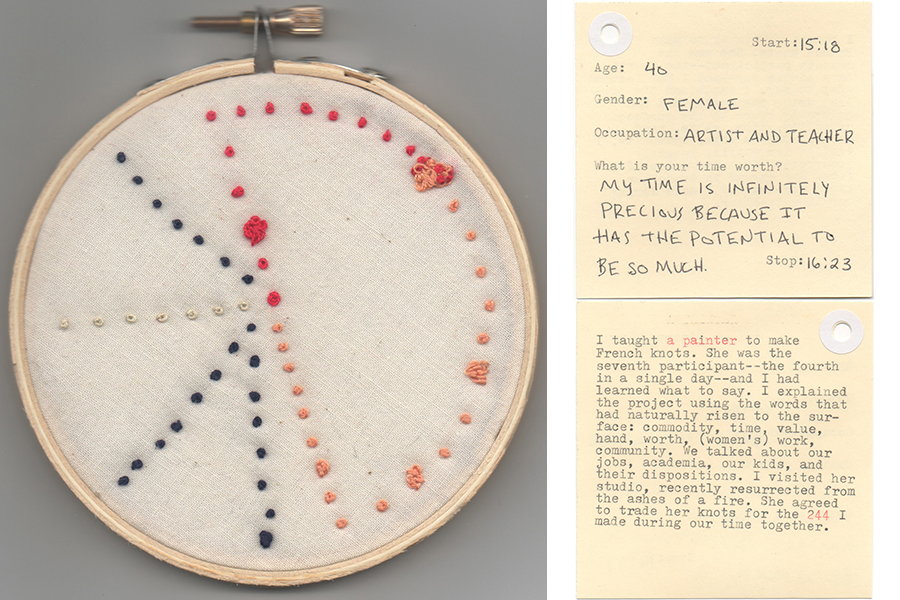 Start: 15:18
Age: 40
Gender: FEMALE
Occupation: ARTIST AND TEACHER
What is your time worth?
MY TIME IS INFINITELY
PRECIOUS BECAUSE IT
HAS THE POTENTIAL TO
BE SO MUCH. Stop: 16:23
I taught a painter to make
French knots. She was the
seventh participant--the fourth
in a single day--and I had
learned what to say. I explained
the project using the words that
had naturally risen to the sur-
face: commodity, time, value,
hand, worth, (women's) work,
community. We talked about our
jobs, academia, our kids, and
their dispositions. I visited her
studio, recently resurrected from
the ashes of a fire. She agreed
to trade her knots for the 244 I
made during our time together.